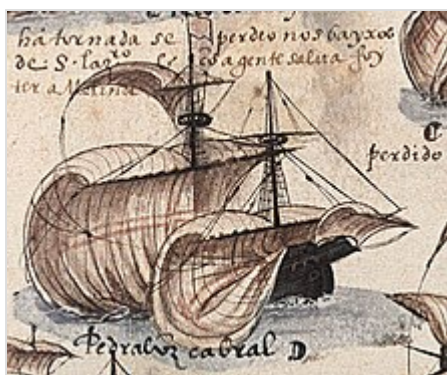 há tornada se perdeo nos bayxos
de S. lazro e cõ a gente salva foy
ter a Melinde
C
perdido
Pedralvz cabral D